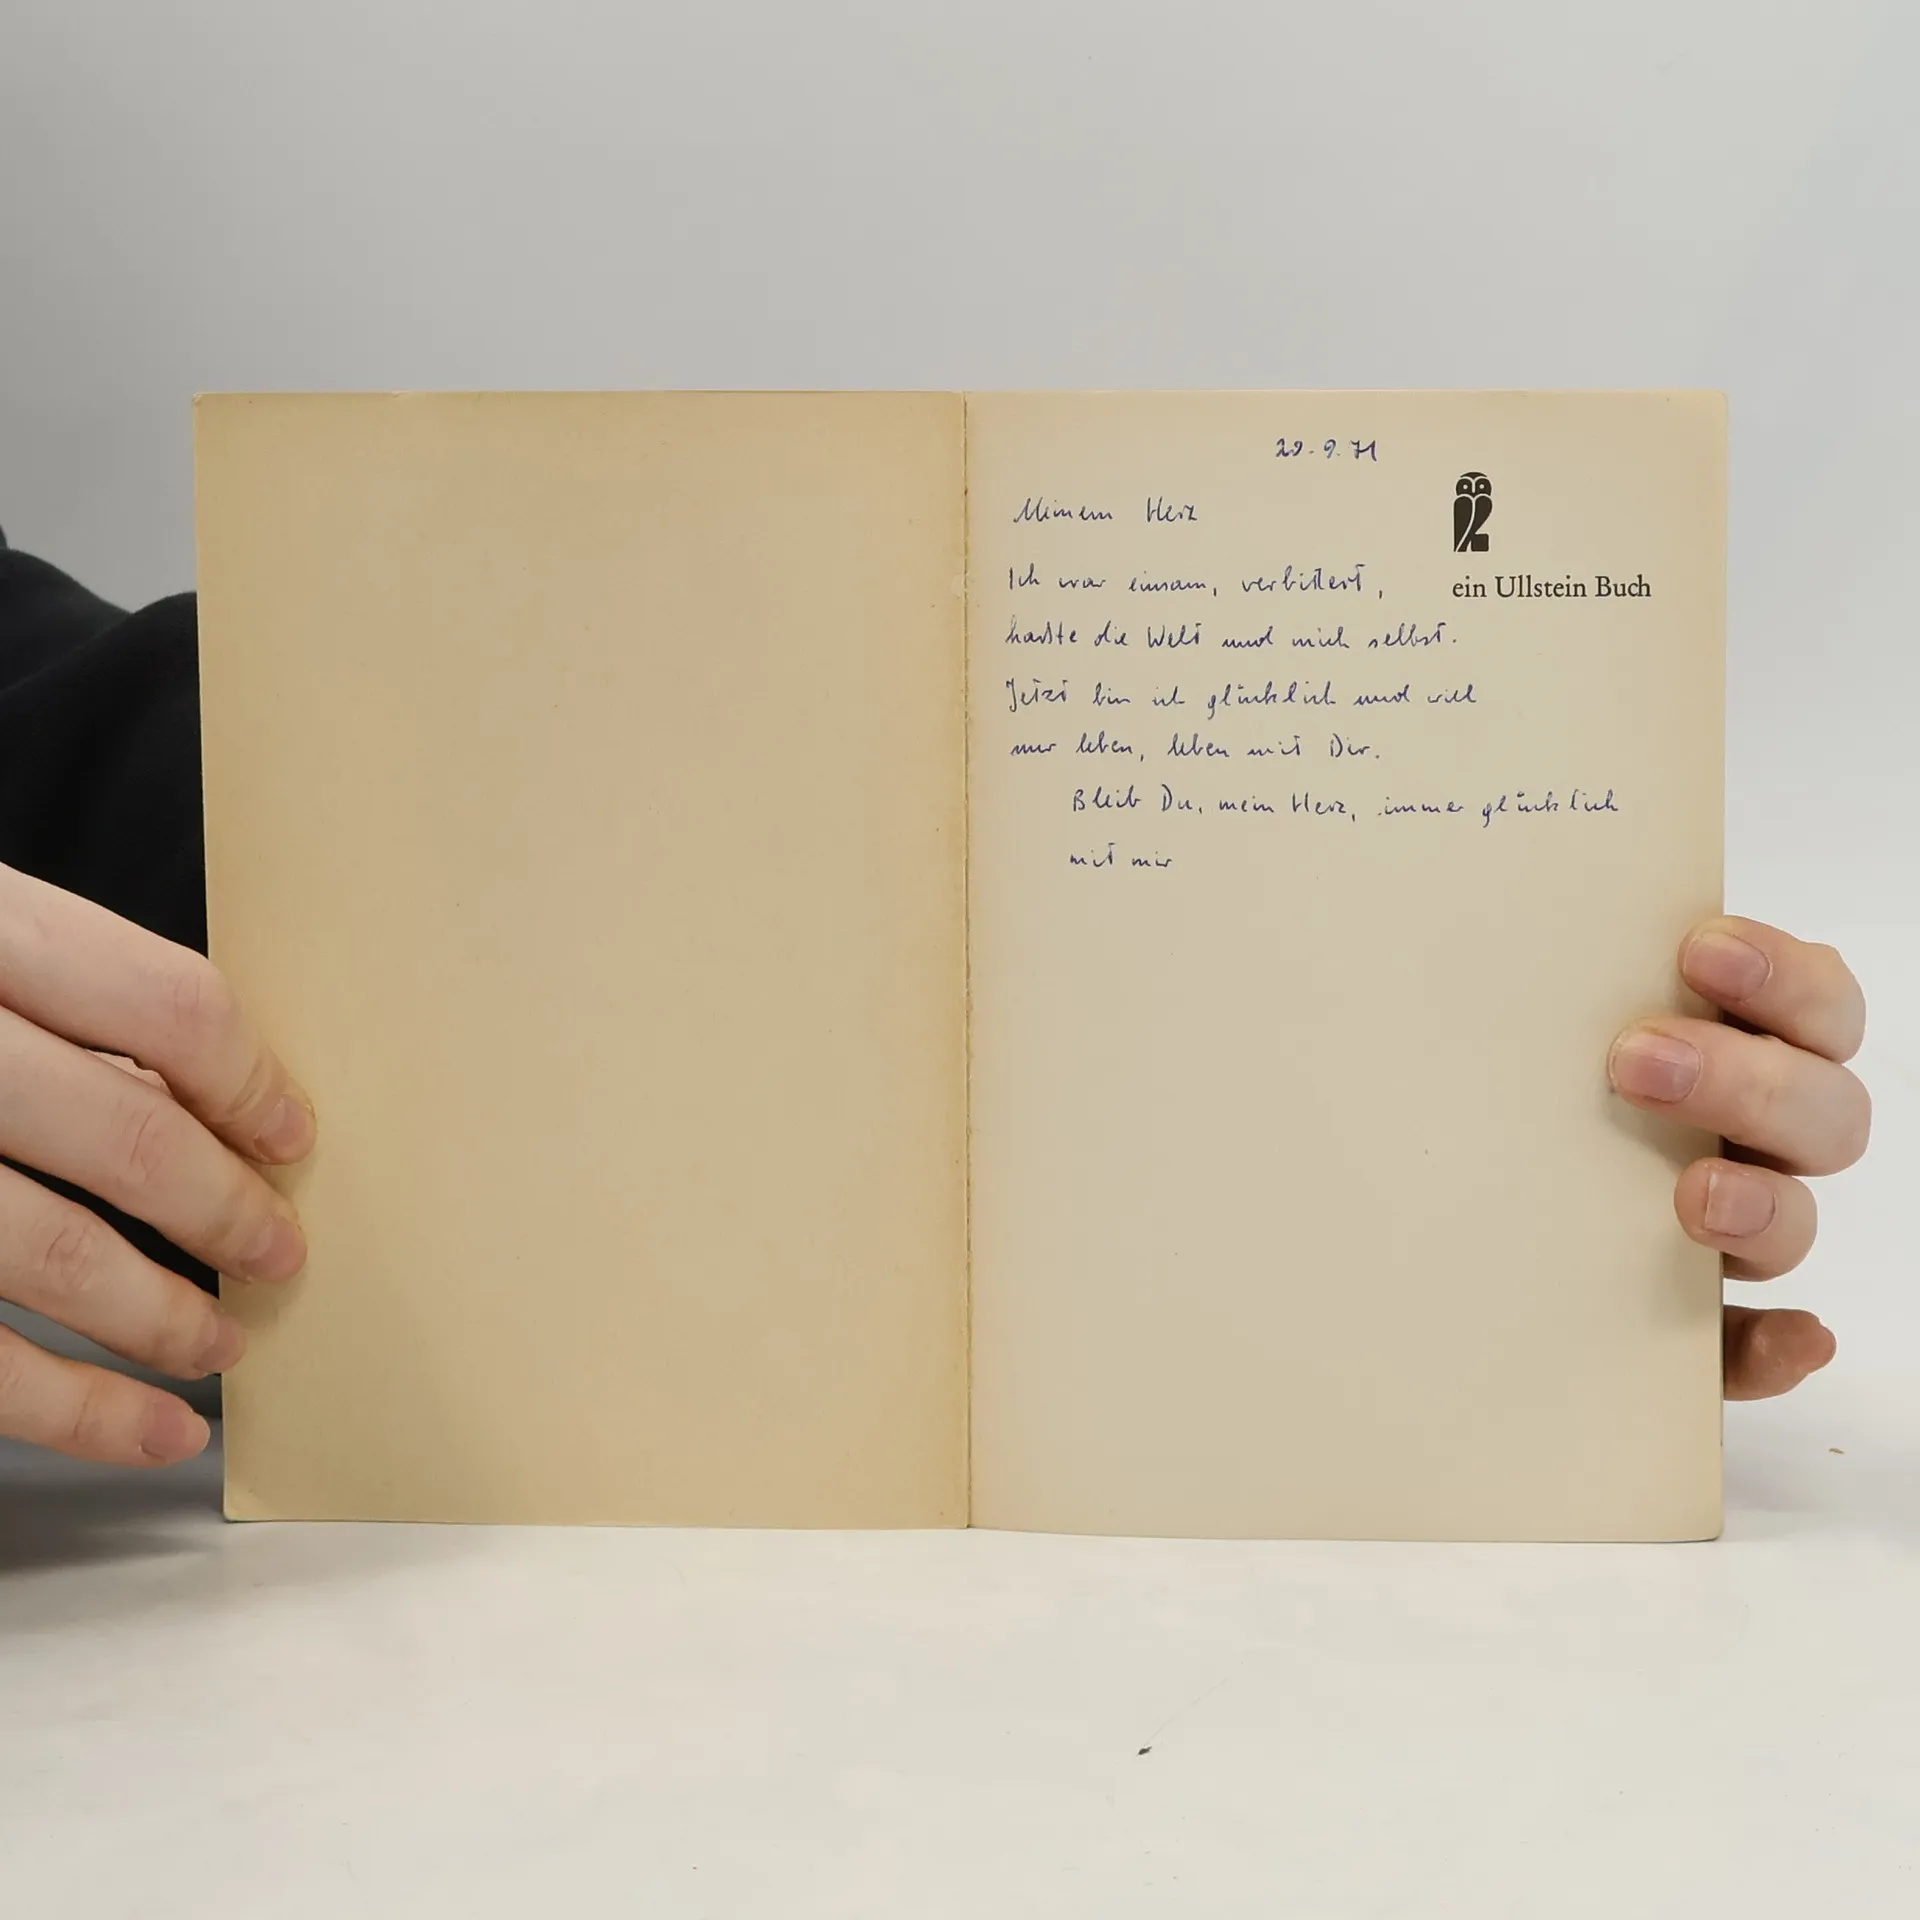 20.9.71
Meinem Herz
ein Ullstein Buch
Ich war einsam, verbittert,
haßte die Welt und mich selbst.
Jetzt bin ich glücklich und will
nur leben, leben mit Dir.
Bleib Du, mein Herz, immer glücklich
mit mir